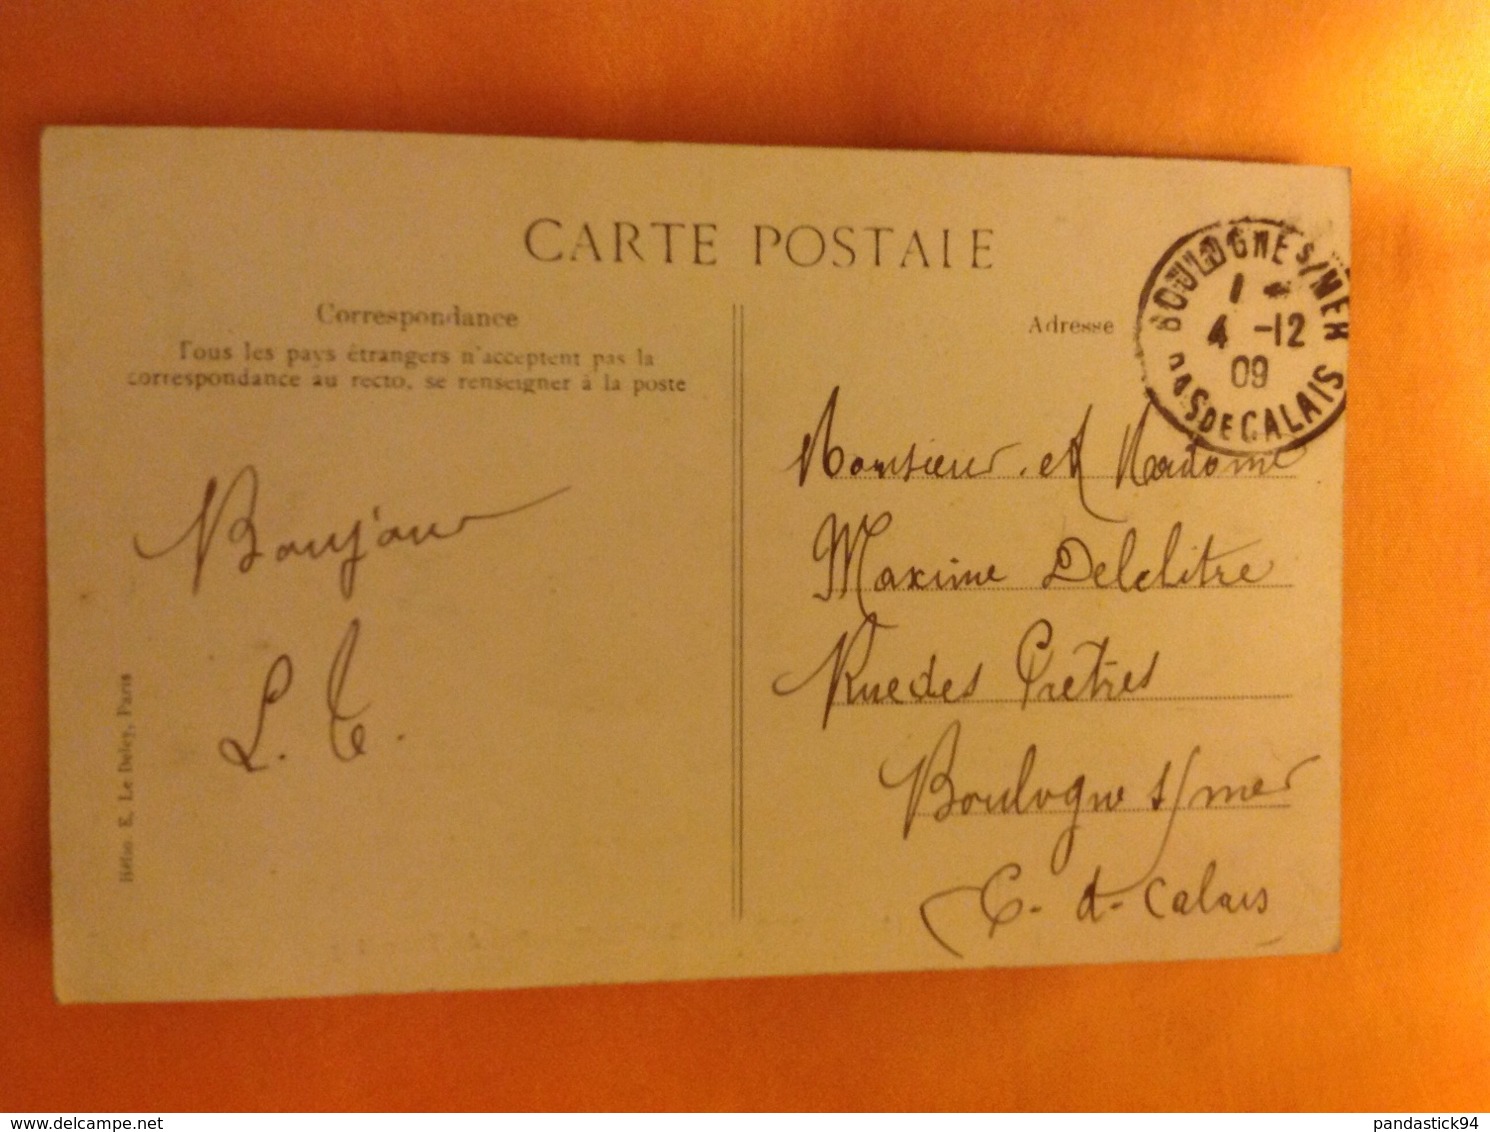 CARTE POSTALE
Correspondance
Tous les pays étrangers n'acceptent pas la
correspondance au recto, se renseigner à la poste
Adresse
BOULOGNE S/MER
1
4 -12
09
PAS DE CALAIS
Bonjour
L. T.
Monsieur et Madame
Maxime Delclitre
Rue des Prêtres
Boulogne s/mer
P. d. Calais
Hélio. E. Le Deley, Paris
www.delcampe.net
pandastick94